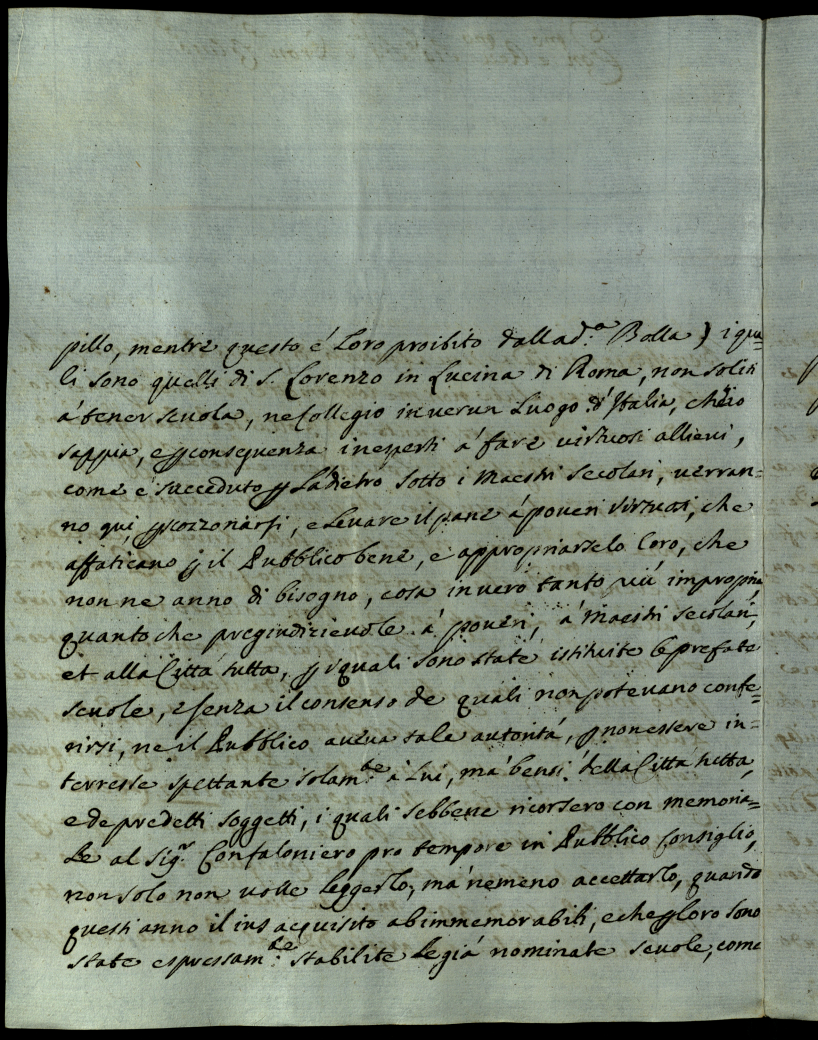 pillo, mentre questo é Loro proibito dalla d.ª Bolla ) i qua=
li sono quelli di S. Lorenzo in Lucina di Roma, non soliti
á tener scuola, ne Collegio in verun Luogo d'Italia, ch'io
sappia, e ꝑ conseguenza inesperti á fare virtuosi allievi,
come é succeduto ꝑ L'adietro sotto i Maestri secolari, verran=
no qui ꝑ scozzonarsi, e Levare il pane á poveri virtuosi, che
affaticano ꝑ il Pubblico bene, e appropriarselo Loro, che
non ne anno di bisogno, cosa invero tanto piú impropria,
quanto che pregiudizievole á poveri, á Maestri secolari,
et alla Cittá tutta, ꝑ i quali sono state istituite le prefate
scuole, e senza il consenso de quali non potevano confe=
rirsi, ne il Pubblico aveva tale autoritá, ꝑ non essere in=
terresse spettante solam.te á Lui, má bensi della Citta tutta,
e de predetti soggetti, i quali sebbene ricorsero con memoria=
le al Sig.r Confaloniero pro tempore in Pubblico Consiglio,
non solo non volle leggerlo, má nemeno accettarlo, quando
questi anno il ius acquisito ab immemorabili, e che ꝑ loro sono
state espressam.te stabilite le giá nominate scuole, come